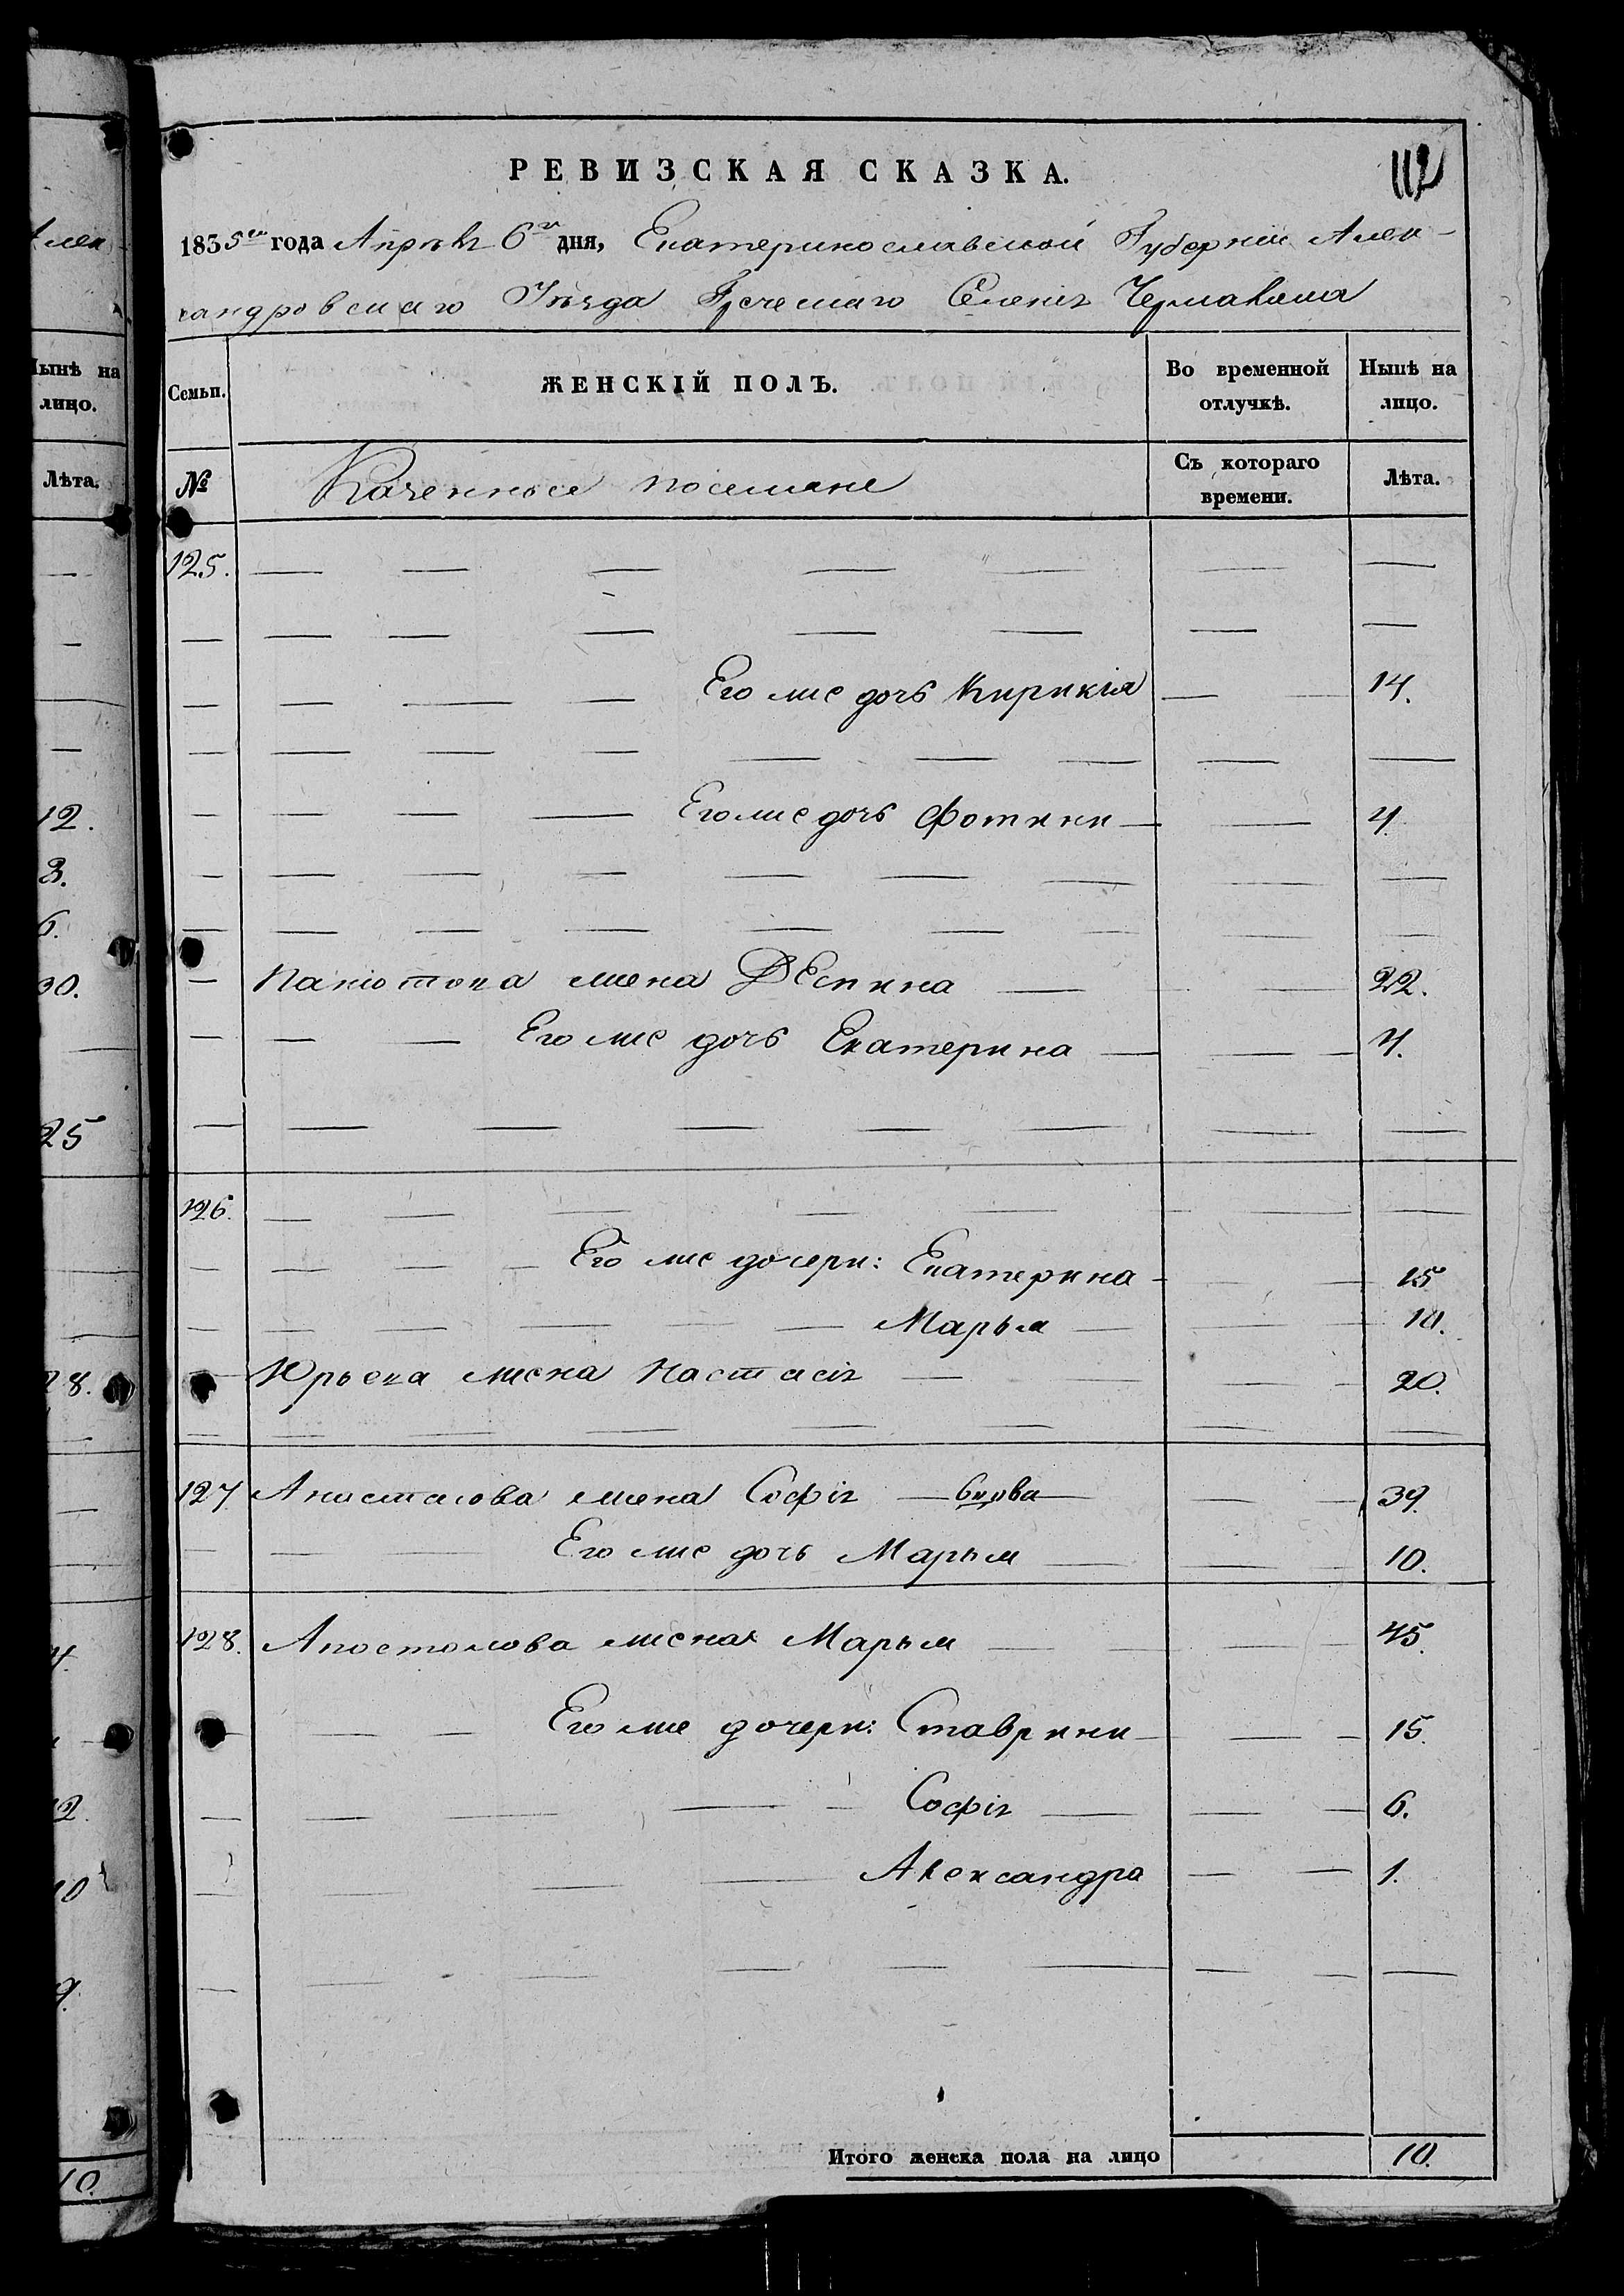 РЕВИЗСКАЯ СКАЗКА.
112
1835го года Апрѣля 6го дня, Екатеринославской Губерніи Алек-
сандровскаго Уѣзда Греческаго Селенія
Семьи.
ЖЕНСКІЙ ПОЛЪ.
Во временной отлучкѣ.
Нынѣ на лицо.
№
Казенные поселяне
Съ котораго времени.
Лѣта.
125. — — — — — — —
— — — — — — — —
— — — — Его же дочь Кирикія — — 14.
— — — — — — — — —
— — — — Его же дочь Фотини — — 4
— — — — — — — — —
— — — — — — — — —
— Панιотова жена Деспина — — — 22.
— — — Его же дочь Екатерина — — — 4.
— — — — — — — —
126. — — — — — — — —
— — — — — Его же дочери: Екатерина — — — 15
— — — — — — Марья — — — 10.
— Юрьева жена Настасія — — — — 20.
— — — — — — — — —
127 Анастасова жена Софія — вдова — — — 39.
— — — Его же дочь Марья — — — 10.
128. Апостолова жена Марья — — — 45.
— — — Его же дочери: Ставрини — — — 15.
— — — — — Софія — — — 6.
— — — — Александра — — 1.
— — — — — — — — —
Итого женска пола на лицо 10.
Нынѣ на
лицо.
Лѣта.
12.
3.
6.
30.
25
28.
4.
10.